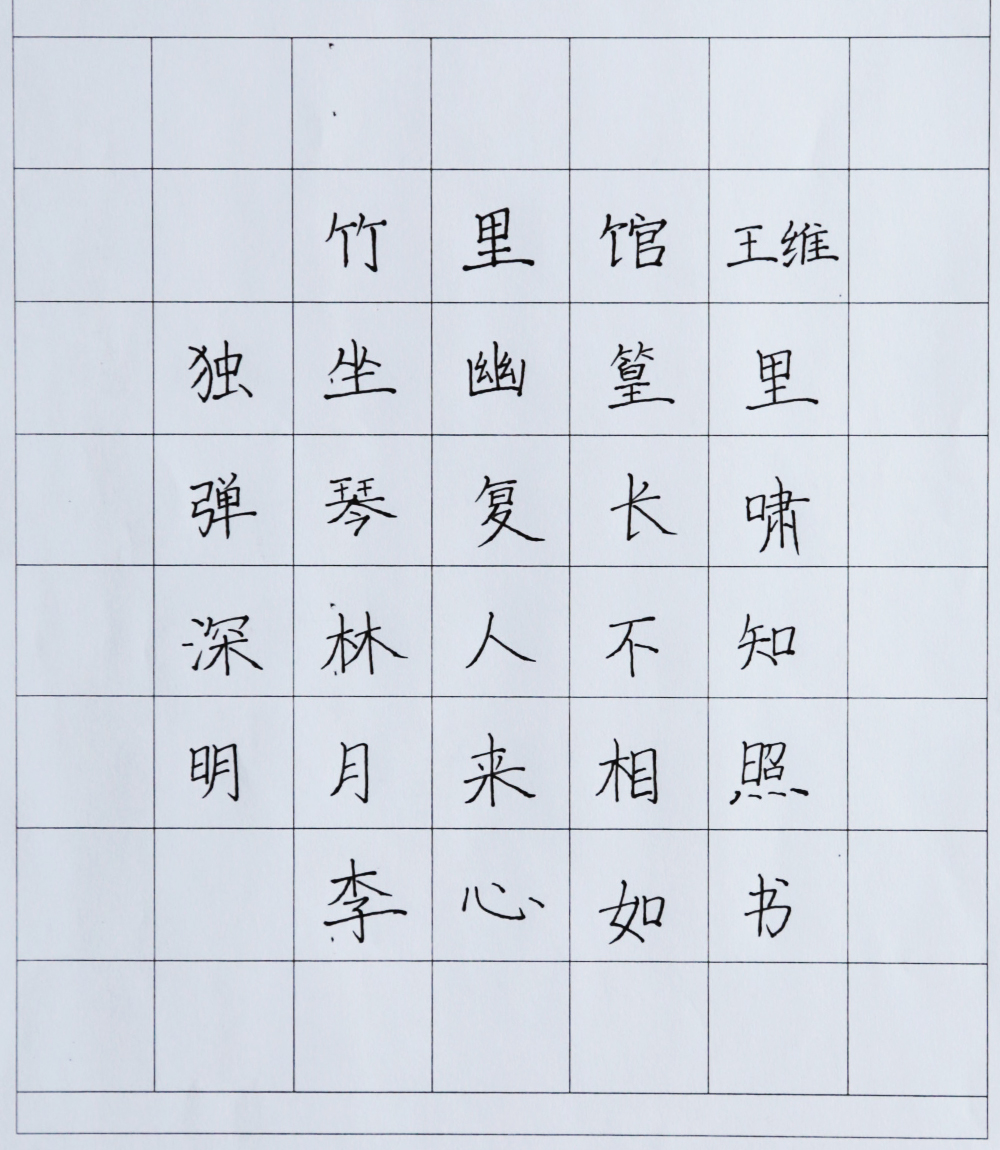 竹里馆 王维
独坐幽篁里
弹琴复长啸
深林人不知
明月来相照
李心如书